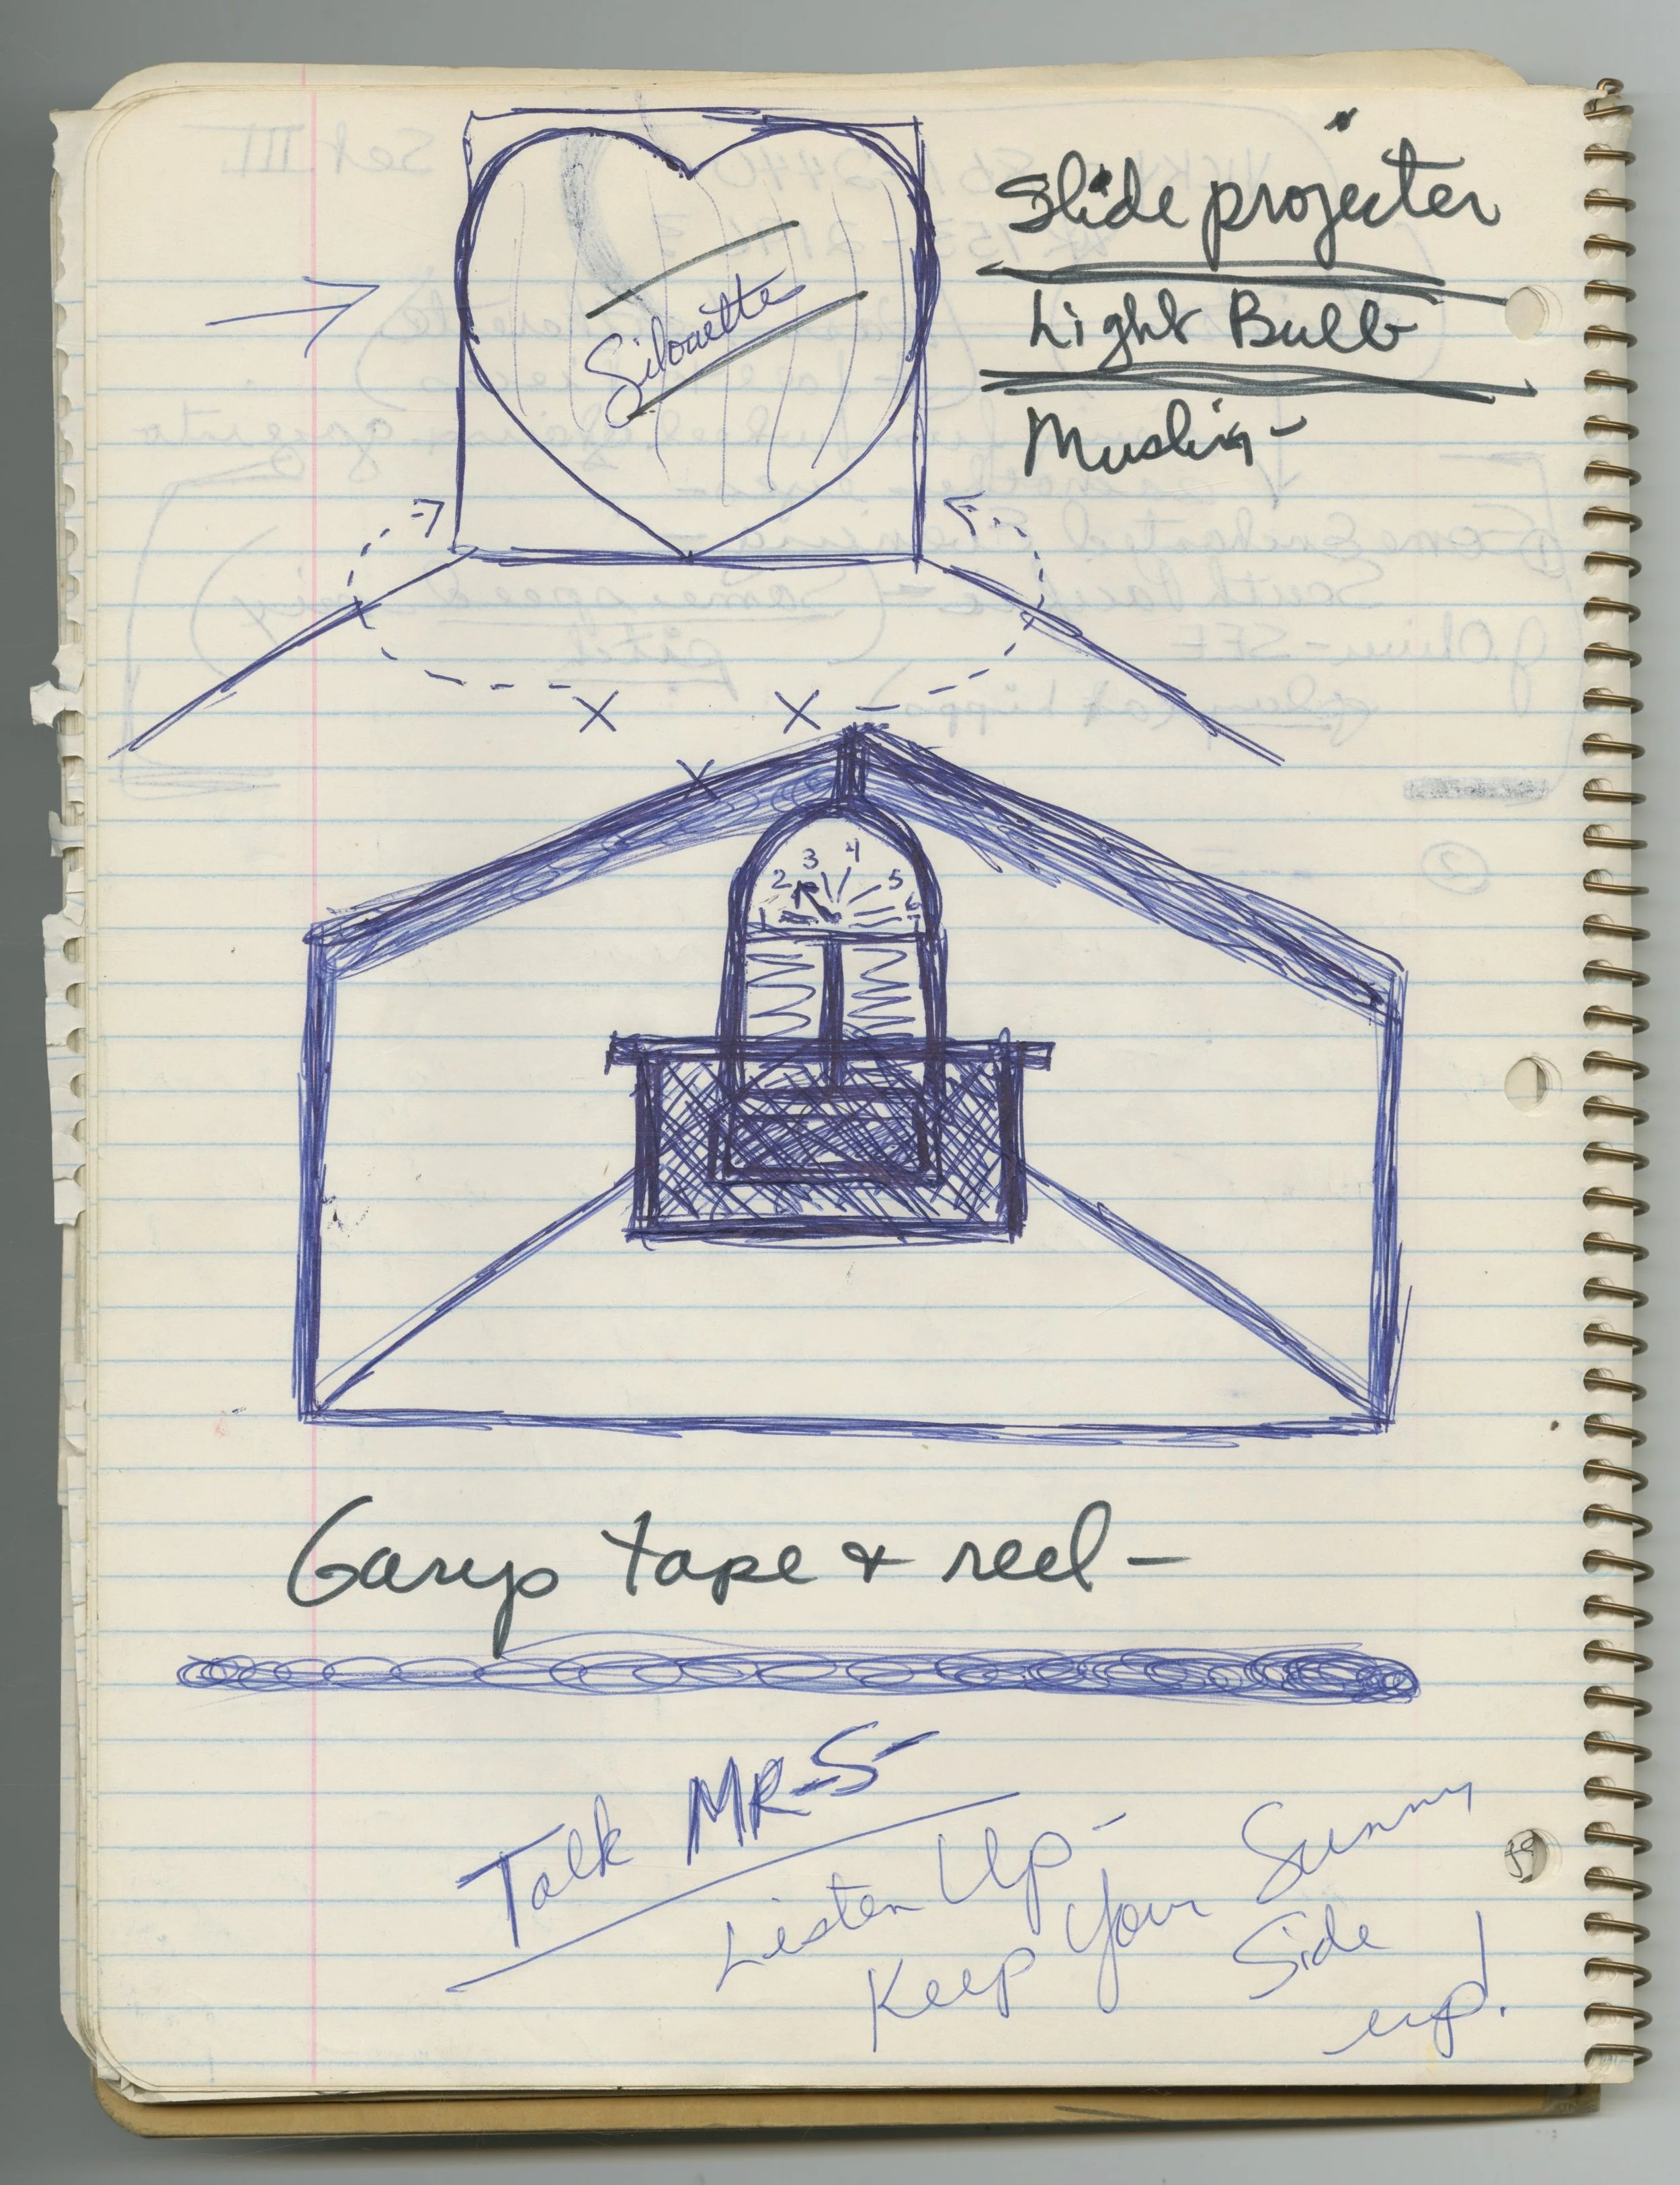 Slide projecter
Light Bulb
Muslin-
Silouette
1 2 3 4 5 6 7
Garys tape & reel-
Talk MR-S-
Listen Up-
Keep Your Sunny
Side
up!